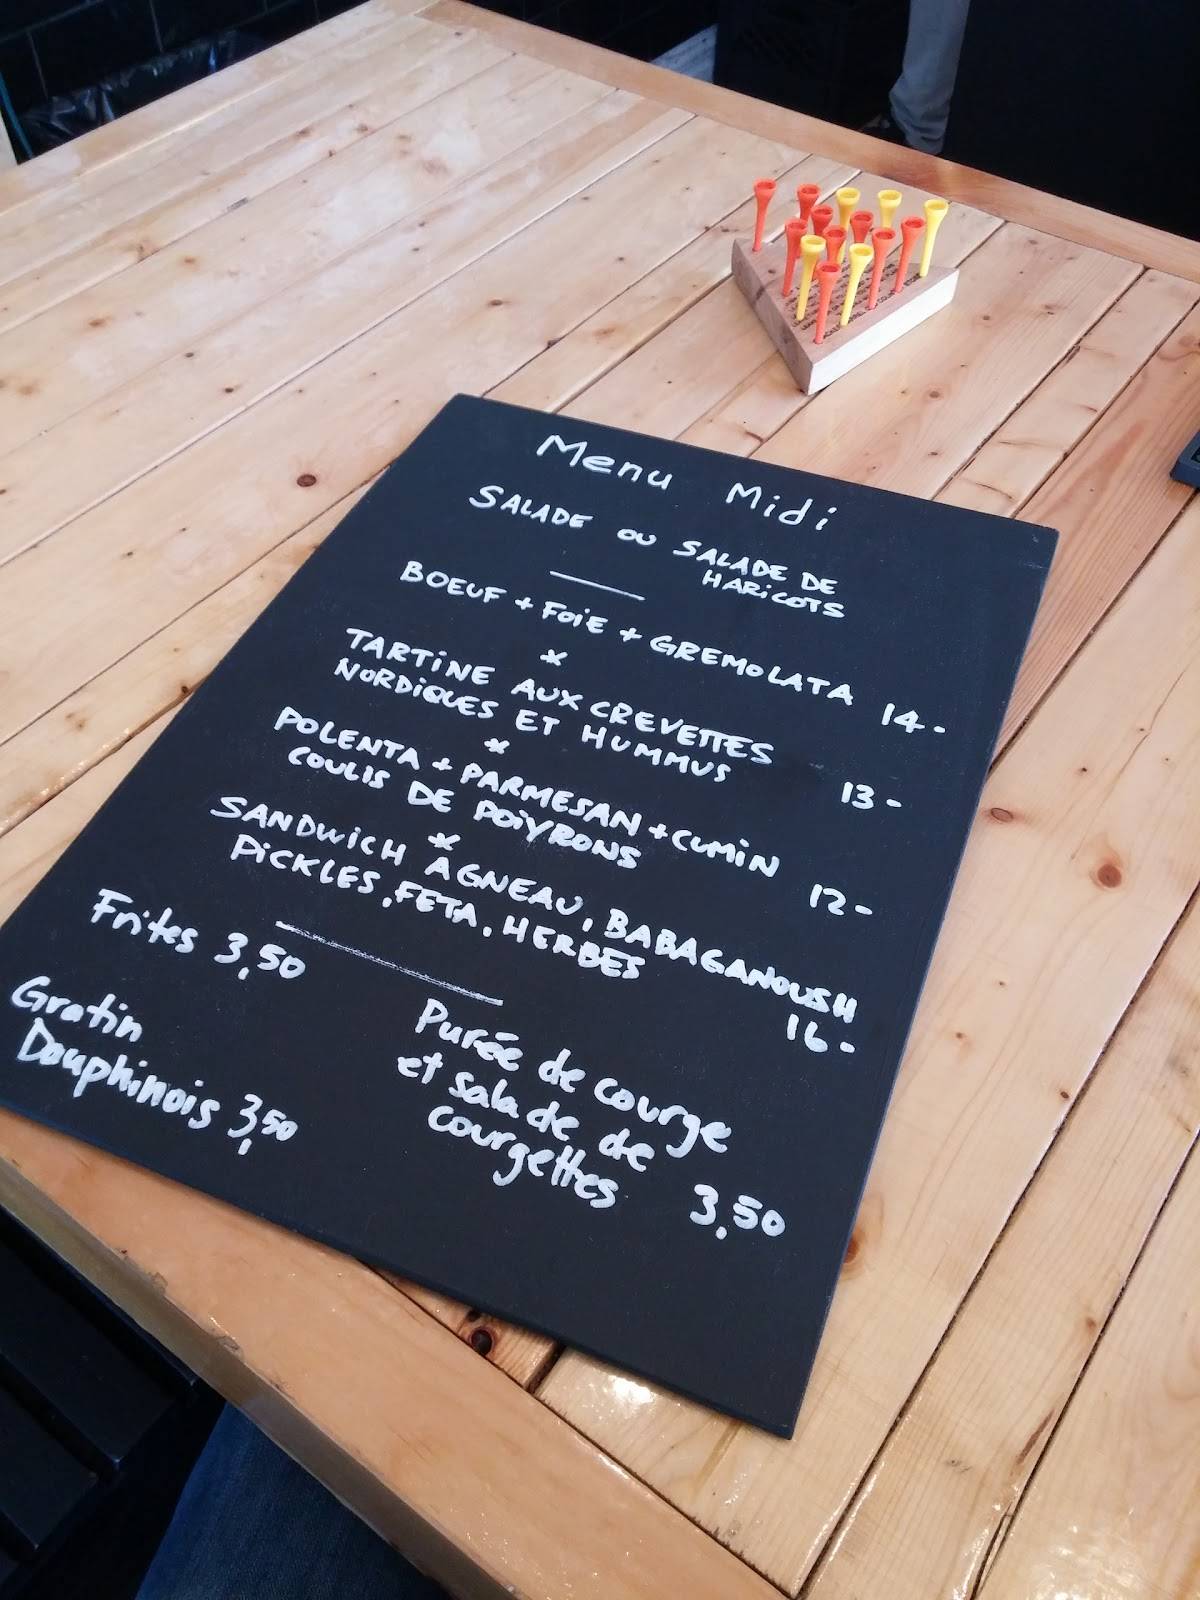 Menu Midi
SALADE OU SALADE DE
HARICOTS
BOEUF + FOIE + GREMOLATA 14-
*
TARTINE AUX CREVETTES
NORDIQUES ET HUMMUS 13-
*
POLENTA + PARMESAN + CUMIN
COULIS DE POIVRONS 12-
*
SANDWICH AGNEAU, BABAGANOUSH
PICKLES, FETA, HERBES 16-
Frites 3,50
Gratin
Dauphinois 3,50
Purée de courge
et salade de
courgettes 3,50